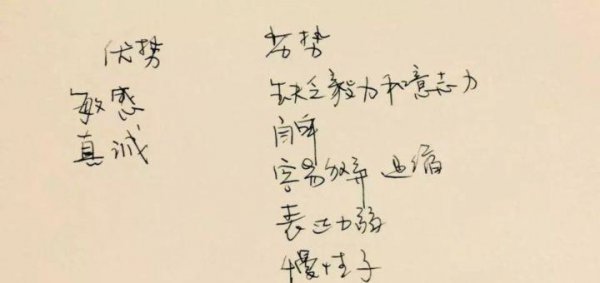 优势 劣势
敏感 缺乏毅力和意志力
真诚 自卑
容易放弃 退缩
表达力弱
慢性子